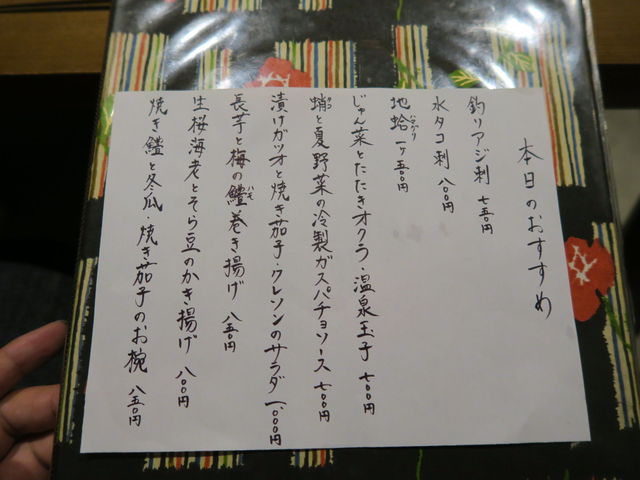 本日のおすすめ
釣りアジ刺 七五〇円
水タコ刺 八〇〇円
地蛤 一ケ 五〇〇円
じゅん菜とたたきオクラ・温泉玉子 七〇〇円
蛸と夏野菜の冷製ガスパチョソース 七〇〇円
漬けガツオと焼き茄子・クレソンのサラダ 一、〇〇〇円
長芋と梅の鱧巻き揚げ 八五〇円
生桜海老とそら豆のかき揚げ 八〇〇円
焼き鱧と冬瓜・焼き茄子のお椀 八五〇円